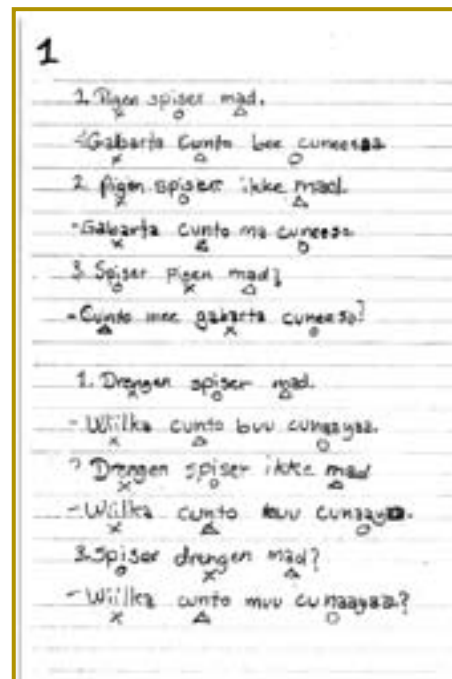 1
1. Pigen spiser mad.
- Gabarta cunto bee cuneesaa
2. Pigen spiser ikke mad.
- Gabarta cunto ma cuneeso
3. Spiser pigen mad?
- Cunto mee gabarta cuneeso?
1. Drengen spiser mad.
- Wiilka cunto buu cunaayaa.
2 Drengen spiser ikke mad
- Wiilka cunto
3. Spiser drengen mad?
- Wiilka cunto muu cunaayaa?